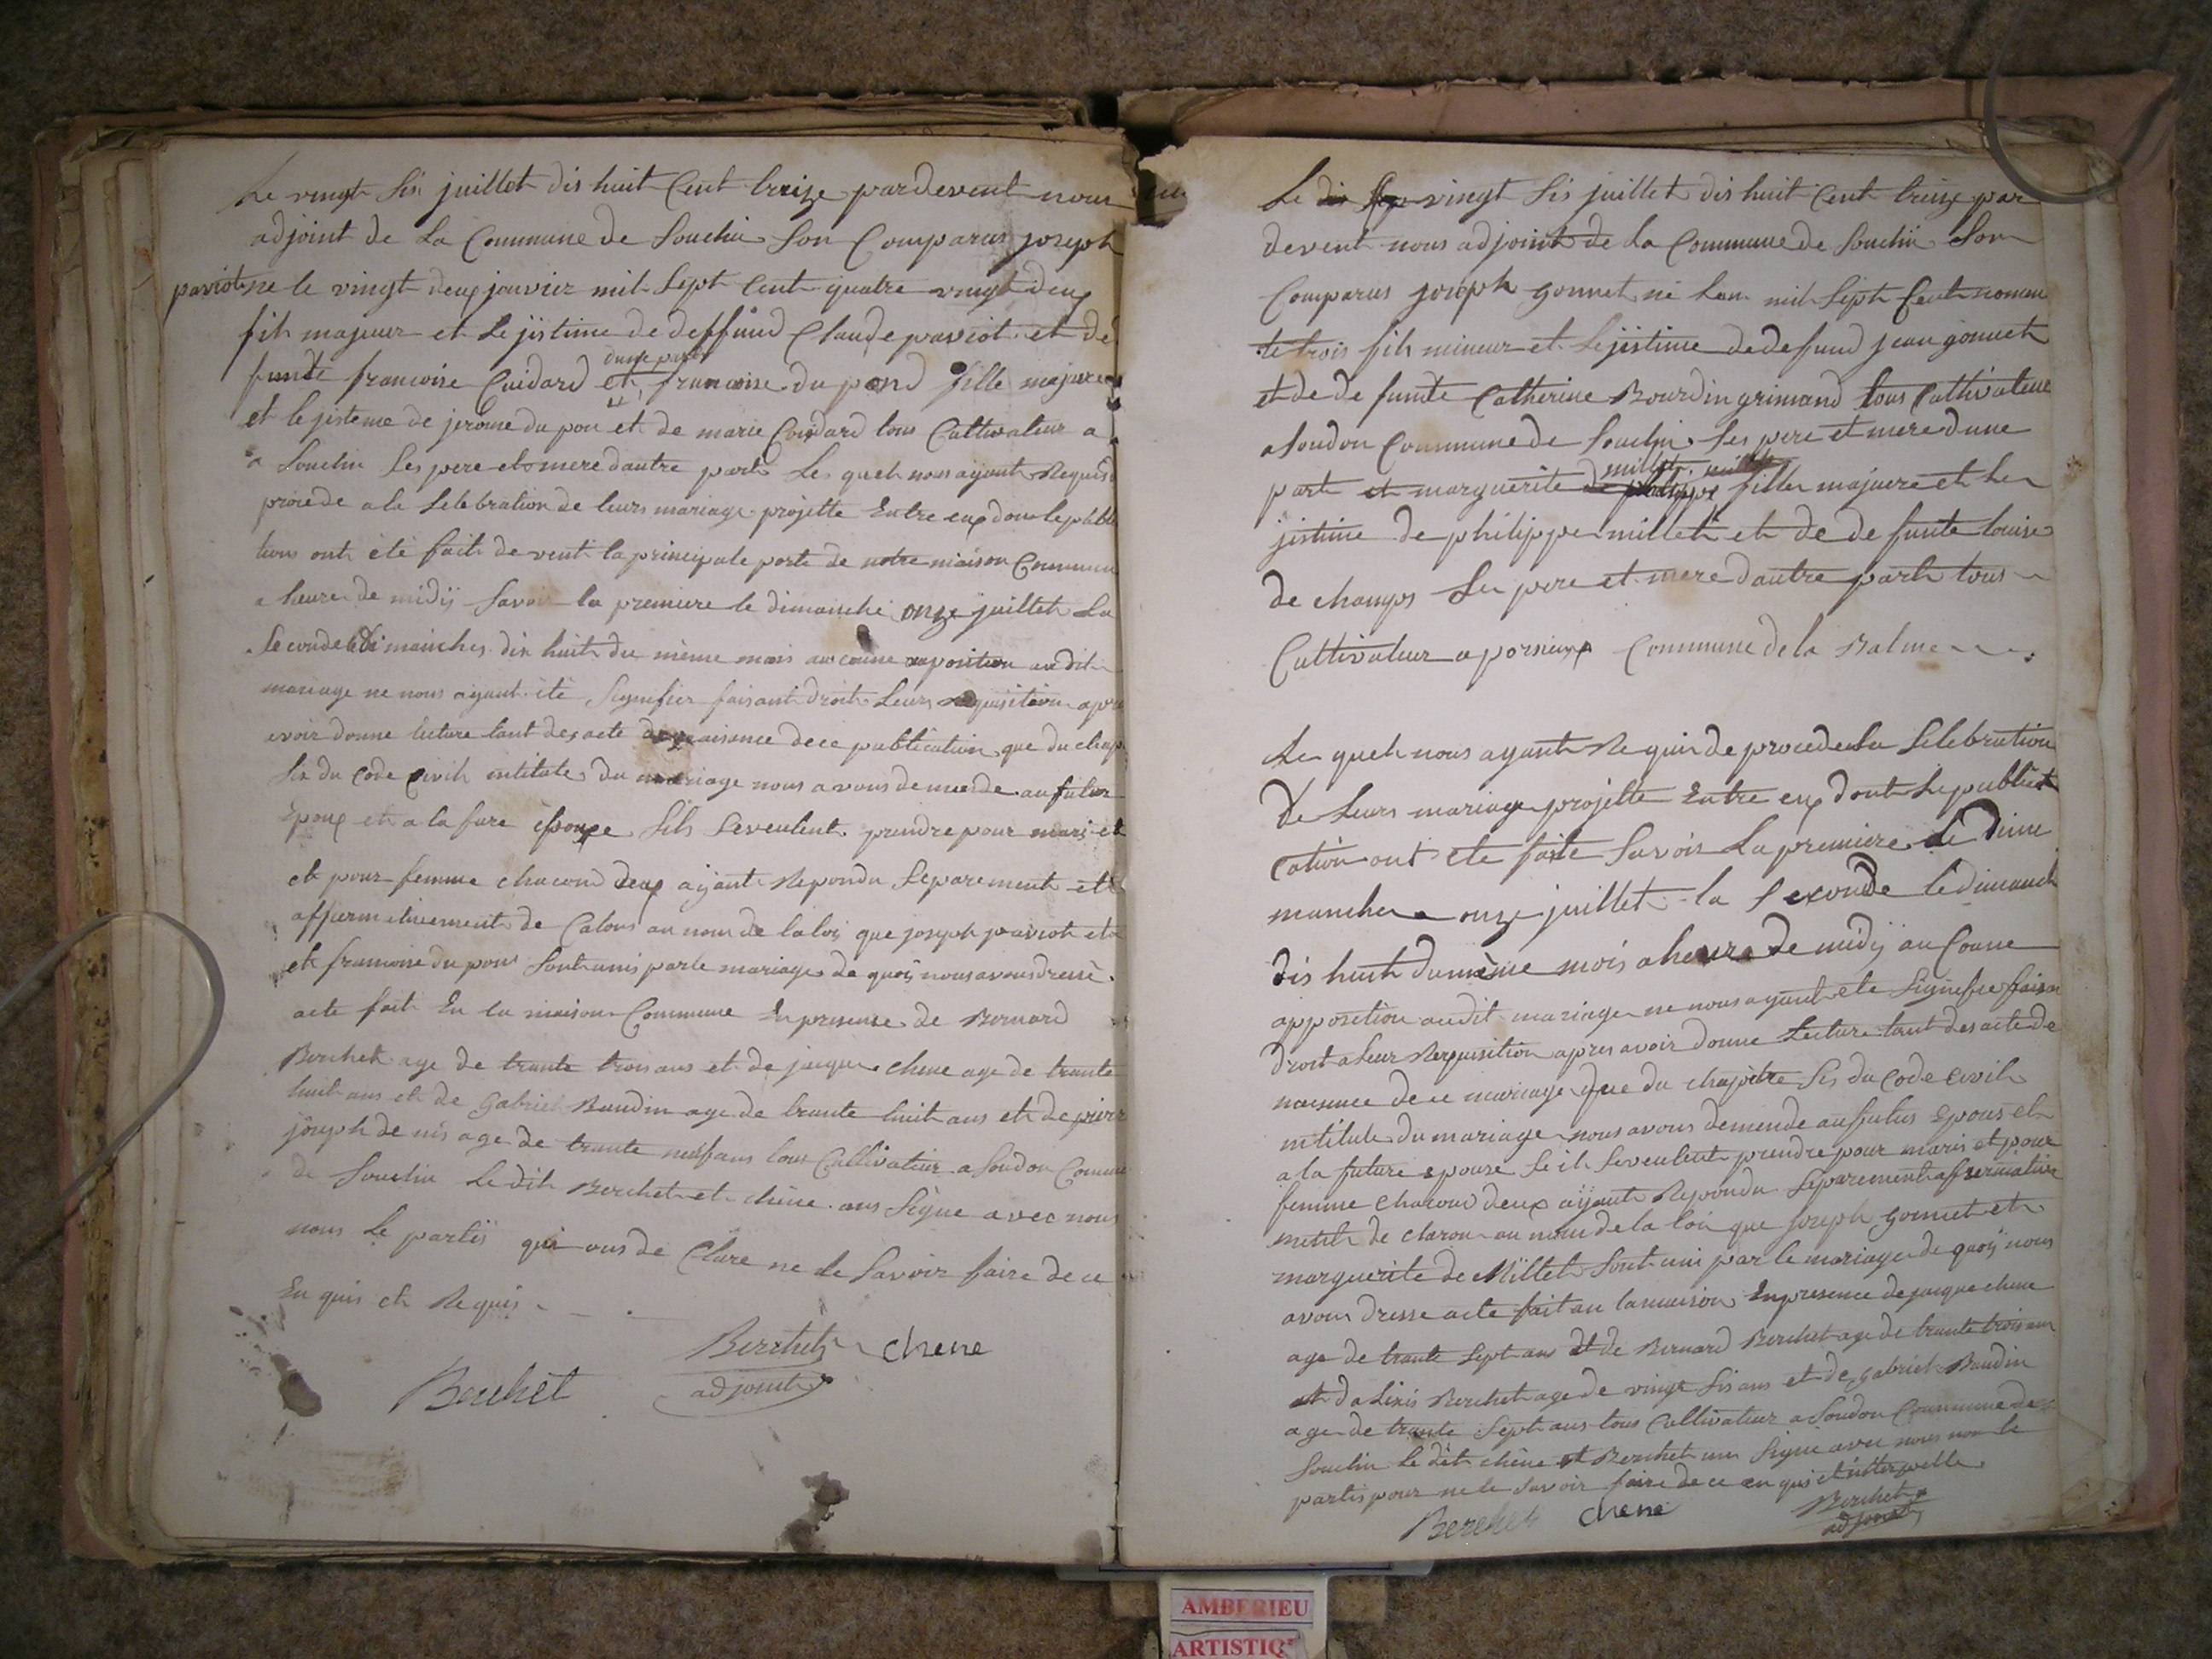 Le vingt Sis juillet dis huit Cent treize pardevent nous
adjoint de La Commune de Souclin Son Comparus joseph
paviot ne le vingt deux janvier mil Sept Cent quatre vingt deux
fils majeur et Lejistime de deffund Claude paviot et de
dune part
funte francoise Cuidard et francoise du pond fille majeure
et lejisteme de jerome du pon et de marie Cuidard tous Cultivateur a
Souclin Ses pere et mere dautre part Les quels nous ayant Requis
procede a la Selebration de leurs mariage projette Entre eux dont le publi
tions ont été fait devent la principale porte de notre maison Commun
a heure de midÿ Savoir la premiere le dimanche onze juillet La
Seconde le dimanches dix huit du même mois aucune oposition audit
mariage ne nous ayant été Signifier faisant droit a Leurs Requisition apre
avoir donne lecture tant des acte de naisence de ce publication que du chap
Sis du Code Civil intitule du mariage nous avons demende au futur
Epoux et a la fure épouse Sils Seveulent prendre pour mari et
et pour femme chacond deux aÿant Repondu Separement et
affermativement de Calons au nom de la loÿ que joseph paviot et
et francoise du pont Sont unis par le mariage de quoÿ nous avons dressé
acte fait En La maison Commune En presense de Bernard
Berchet age de trante trois ans et de jacque chene age de trante
huit ans et de Gabriel Baudin age de trante huit ans et de pierr
joseph de nis age de trante neuf ans tous Cultivateur a Soudon Commune
de Souclin Le dit Berchet et chêne ons Signe avec nous
nous Le partis qui ons de Clare ne Le Savoir faire de ce
En quis et Requis
Berchet chene
Berchet adjoint
Le vingt Sis juillet dis huit Cent treize par
devent nous adjoint de la Commune de Souclin Son
Comparus joseph gonnet né Lan mil Sept Cent nonen
te trois fils mineur et Lejistime de defund jean gonnet
et de de funte Catherine Bourdin grimand tous Cultivateur
a Soudon Commune de Souclin Ses pere et mere dune
millet
part et marguerite de philippe fille majeure et Le
jistime de philippe millet et de de funte louise
de champs Ses pere et mere dautre part tous
Cultivateur a porsieux Commune de la Balme
Les quels nous ayant Requis de procede a la Selebration
de Leurs mariage projette Entre eux dont Le publi
cation ont ete faite Savoir La premiere Le dime
manche onze juillet la Seconde le dimanch
dis huit du même mois a heure de midÿ au Coune
apposition audit mariage ne nous ayant ete Signifie faisan
droit a Leur Requisition apres avoir donne Lecture tant des acte de
naisence de ce mariage que du chapitre Sis du Code Civil
intitule du mariage nous avons demende au futus Epous et
a la future epouse Se ils Seveulent prendre pour maris et pour
femme Chacond deux aÿant Repondu Separement affermative
ment de claron au nom de la loi que joseph gonnet et
marguerite de Millet Sont uni par le mariage de quoÿ nous
avons dresse acte fait an la maison En presence de jacque chene
age de trante Sept ans et de Bernard Berchet age de trante trois ans
et da Lixis Berchet age de vingt Sis ans et de gabriel Baudin
age de trante Sept ans tous Cultivateur a Soudon Commune de
Souclin Le dit chêne et Berchet ons Signe avec nous non le
partis pour ne le Savoir faire de ce en quis et interpelle
Berchet chene Berchet
adjoint
AMBERIEU
ARTISTIQ